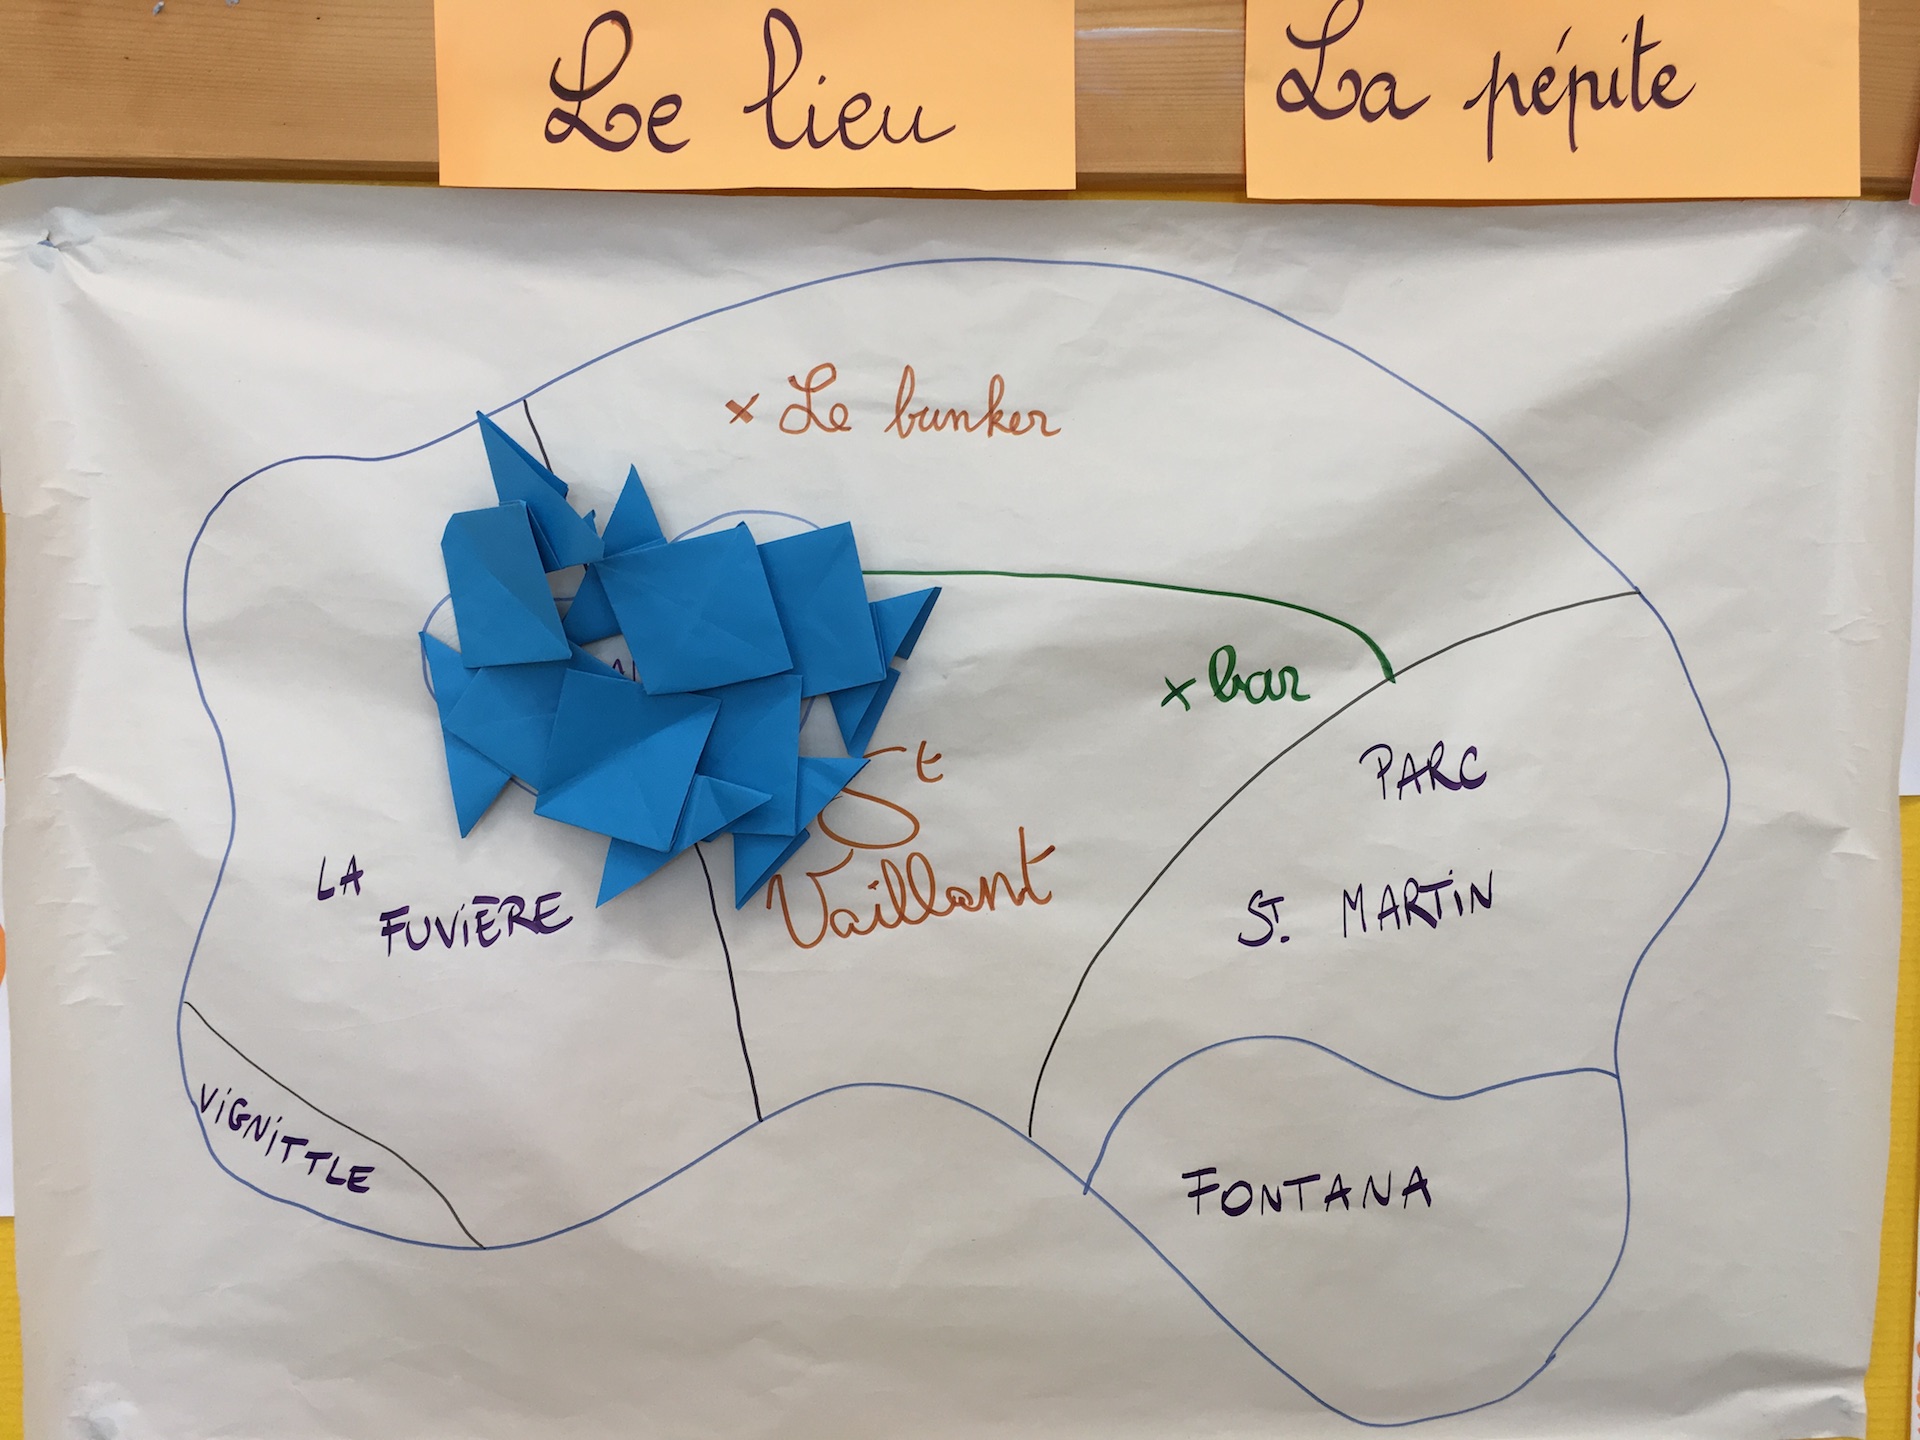 Le lieu
La pépite
x Le bunker
x bar
St
Vaillant
PARC
ST. MARTIN
LA
FUVIÈRE
VIGNITTLE
FONTANA